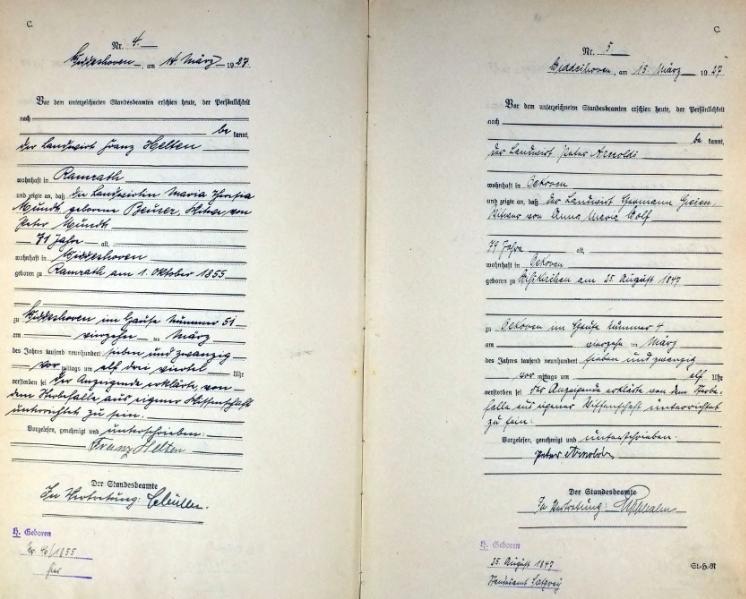 C.
Nr. 4.
Widdeshoven, am 14. März 1927
Vor dem unterzeichneten Standesbeamten erschien heute, der Persönlichkeit
nach
be kannt,
der Landwirt Franz Helten
wohnhaft in Ramrath
und zeigte an, daß die Landwirtin Maria Theresia
Mündt geborene Beurer, Witwe von
Peter Mündt
71 Jahre alt,
wohnhaft in Widdeshoven
geboren zu Ramrath am 1. Oktober 1855
zu Widdeshoven im Hause Nummer 51
am vierzehn ten März
des Jahres tausend neunhundert sieben und zwanzig
vor mittags um elf drei viertel Uhr
verstorben sei. Der Anzeigende erklärte, von
dem Sterbefalle aus eigener Wissenschaft
unterrichtet zu sein.
Vorgelesen, genehmigt und unterschrieben.
Franz Helten
Der Standesbeamte
In Vertretung:
H. Geboren
Nr. 46/1855
hier
C.
Nr. 5
Widdeshoven, am 15. März 1927
Vor dem unterzeichneten Standesbeamten erschien heute, der Persönlichkeit
nach
be kannt,
der Landwirt Peter Arnolds
wohnhaft in Oekoven
und zeigte an, daß der Landwirt Hermann
Witwer von Anna Maria Wolf
79 Jahre alt,
wohnhaft in Oekoven
geboren zu am 25. August 1847
zu Oekoven im Hause Nummer 4
am vierzehn ten März
des Jahres tausend neunhundert sieben und zwanzig
vor mittags um elf Uhr
verstorben sei. Der Anzeigende erklärte von dem Sterbe-
falle aus eigener Wissenschaft unterrichtet
zu sein.
Vorgelesen, genehmigt und unterschrieben.
Peter Arnolds
Der Standesbeamte
In Vertretung:
H. Geboren
25. August 1847
Standesamt
St-H-R